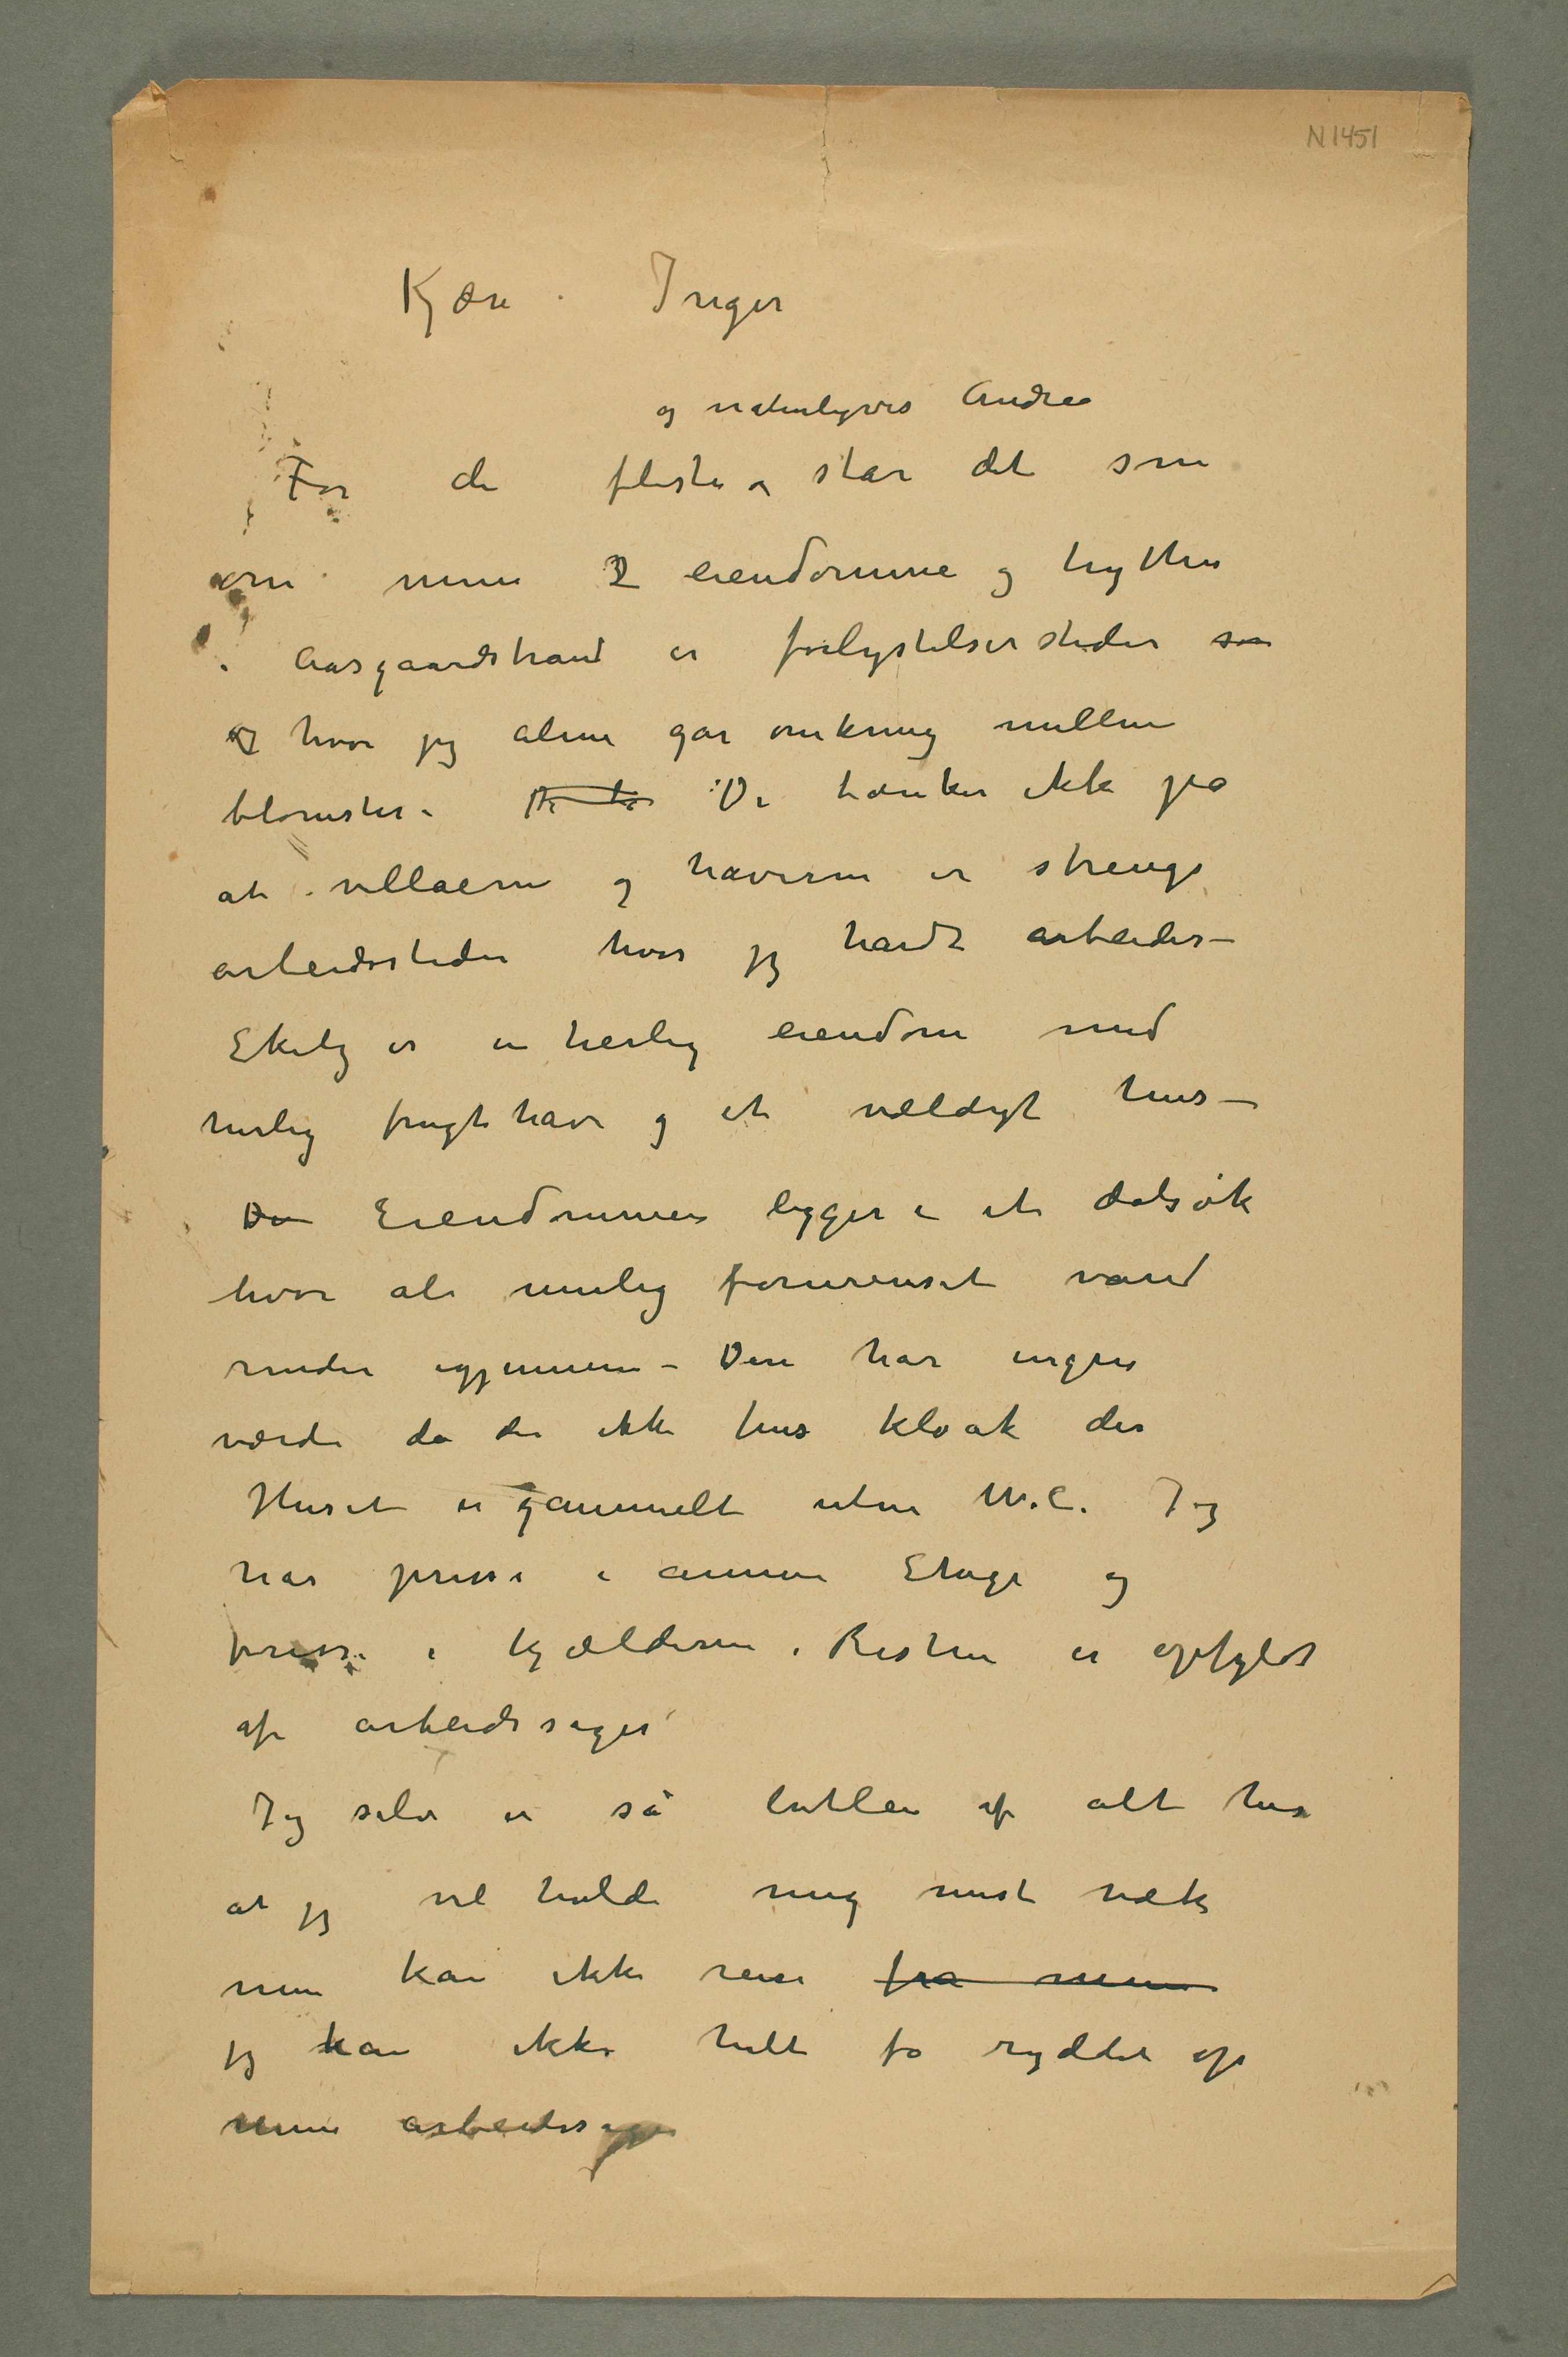 N 1451
Kjære Inger
og naturligvis Andrea
For de fleste står det som
om mine 2 eiendomme og hytten
i Aasgaardstrand er forlystelsersteder som
og hvor jeg alene går omkring mellem
blomster. De tæ De tænker ikke på
at villaerne og haverne er strenge
arbeidssteder hvor jeg hardt arbeider –
Ekely er en herlig eiendom med
herlig frugthave og et vældigt hus –
Den Eiendommen ligger i et dalsøk
hvor al mulig forurenset vand
rinder igjennem – Den har ingen
værdi da der ikke fins kloak der
Huset er gammelt uten W.C. Jeg
har presse i annen Etage og
presse i Kjælderen. Resten er opfyldt
af arbeidssager
Jeg selv er så lutlei af alt her
at jeg vil holde mig mest væk
men kan ikke reise fra mine
jeg kan ikke helt få ryddet op
mine arbeidssager